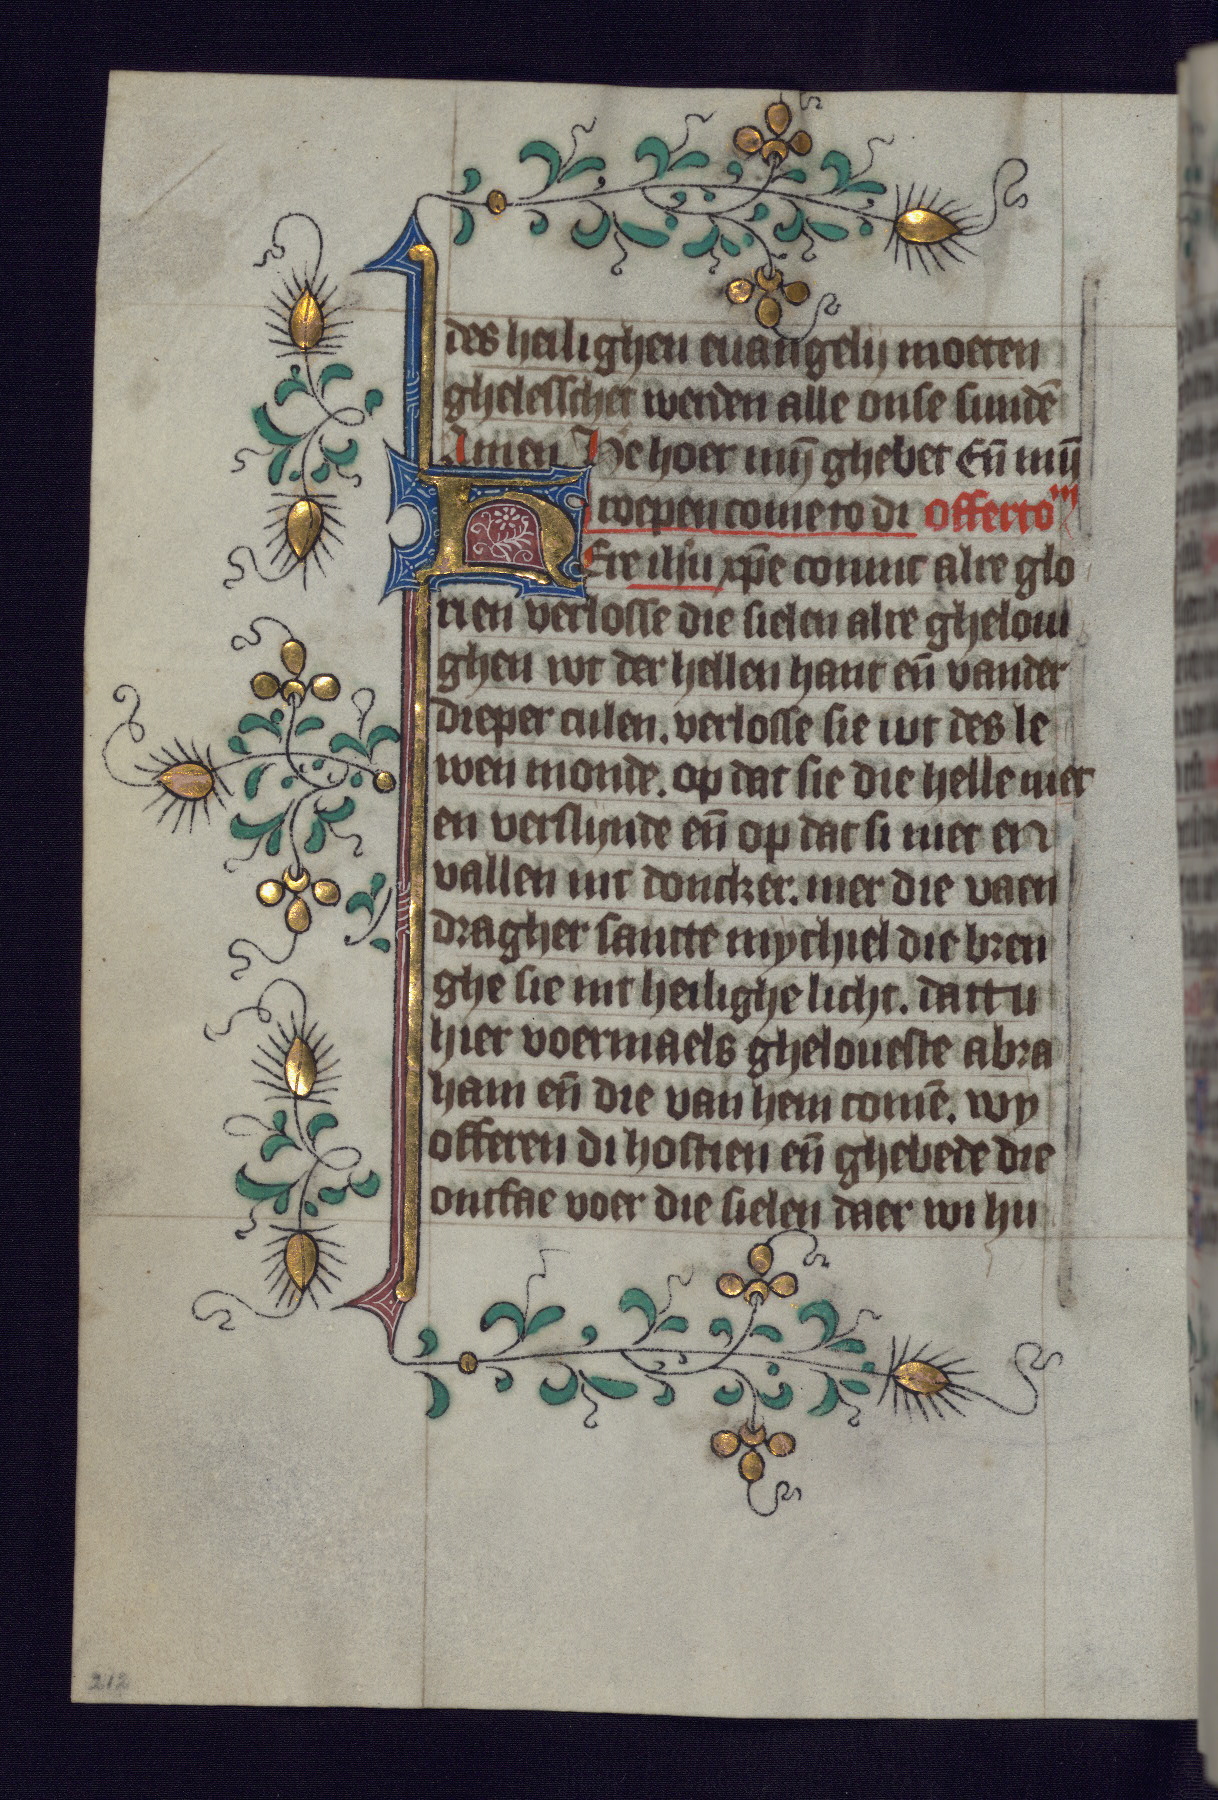 des heilighen euangelij moeten
ghelesschet werden alle onse sundē
Amen He hoer mȳ ghebet Eñ mȳ
roepen come to di offerto
HEre ihu xpe coninc alre glo
rien verlosse die sielen alre gheloui
ghen wt der hellen hant eñ vander
dieper culen. verlosse sie wt des le
wen monde. op dat sie die helle niet
en verslynde eñ op dat si niet en
vallen int doncker. mer die vaen
dragher sancte mychiel die bren
ghe sie int heilighe licht. datt u
hier voermaels gheloueste abra
ham eñ die van hem comē. wy
offeren di hostien eñ ghebede die
ontfae voer die sielen daer wi hu
212